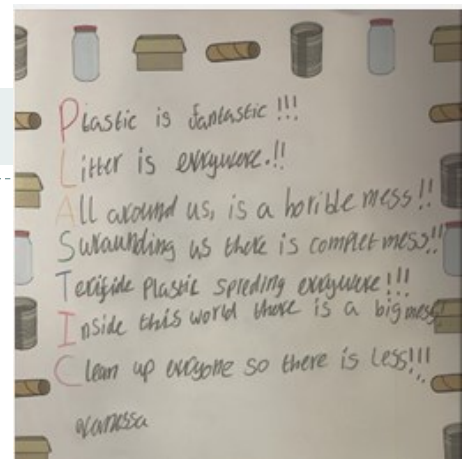 Plastic is fantastic!!!
Litter is evrywere.!!
All around us, is a horible mess!!
Suraunding us there is complet mess!!
Terifide plastic spreding evrywere!!!
Inside this world there is a big mess
Clean up evryone so there is less!!!
vanessa